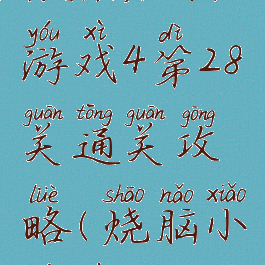 yóu xì dì
游戏4第28
guān tōng guān gōng
关通关攻
lüè shāo nǎo xiǎo
略(烧脑小